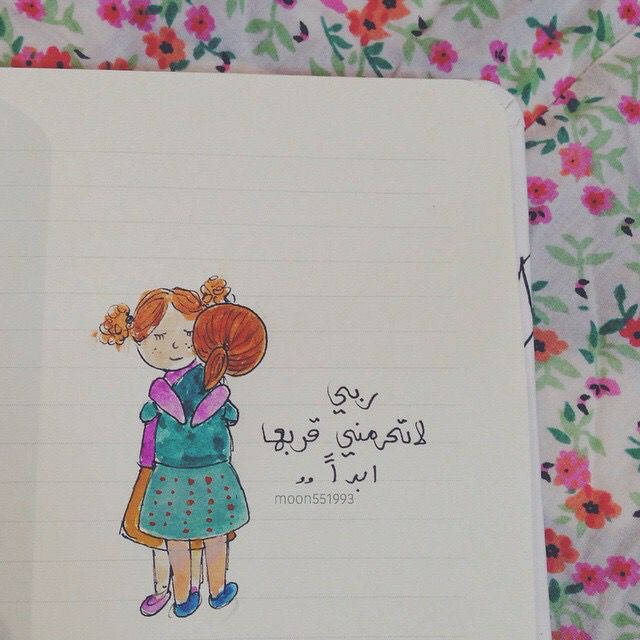 ربي
لاتحرمني قربها
ابداً ،،
moon551993